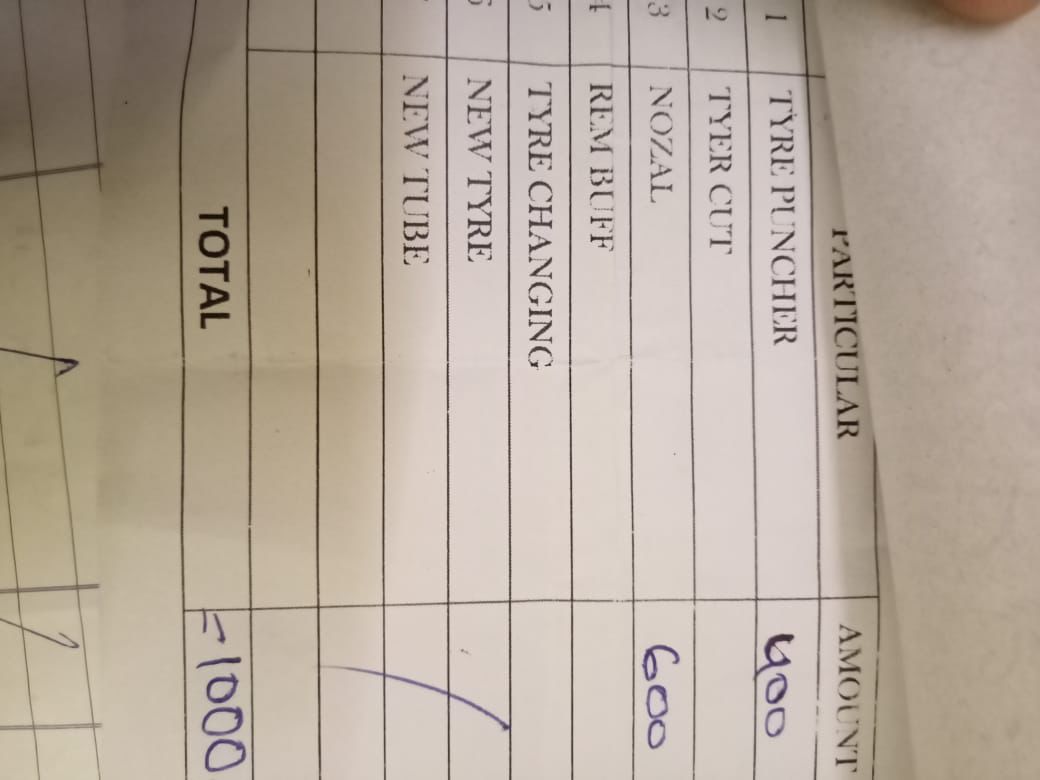 PARTICULAR AMOUNT
1 TYRE PUNCHER 400
2 TYER CUT
3 NOZAL 600
4 REM BUFF
5 TYRE CHANGING
6 NEW TYRE
NEW TUBE
TOTAL =1000